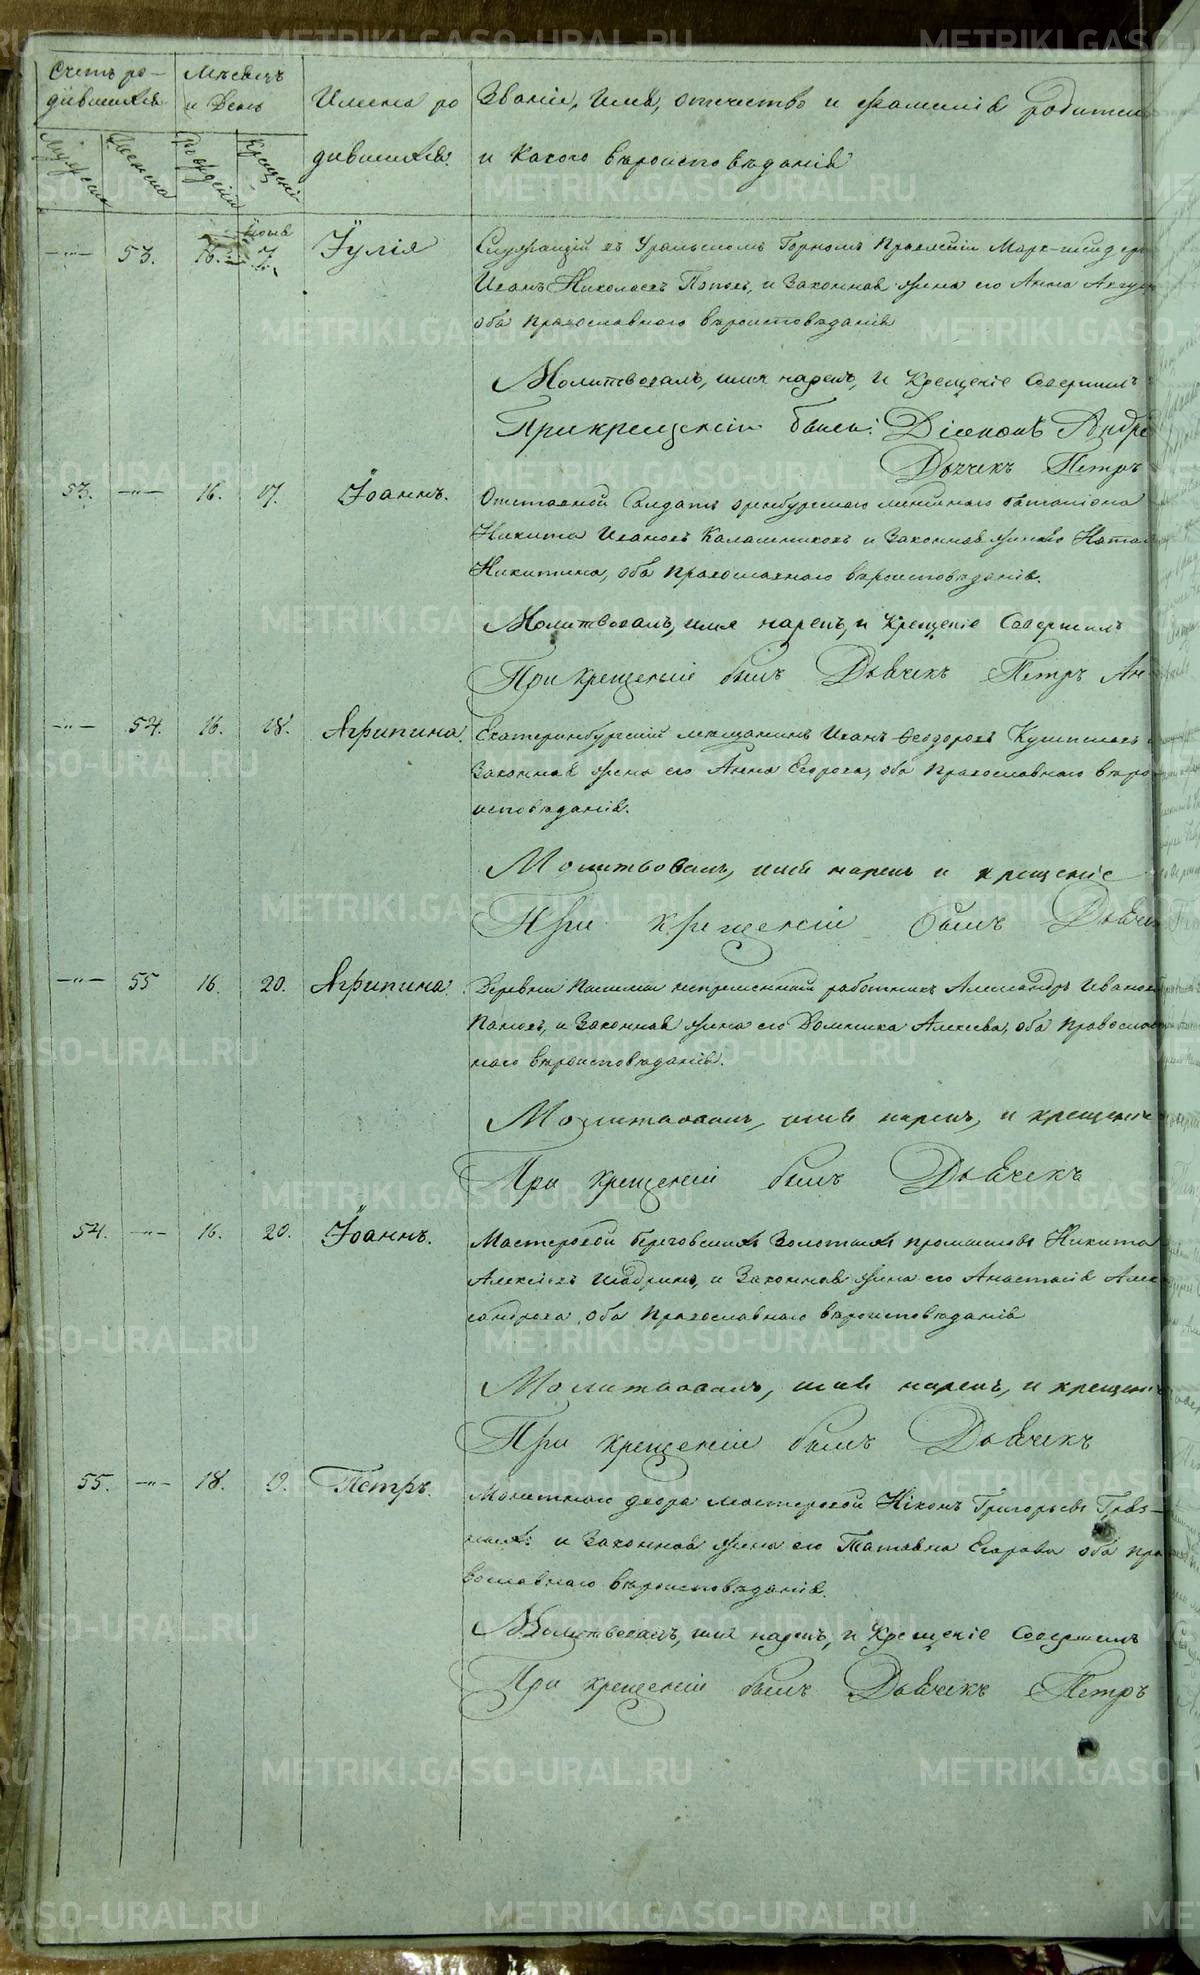 Счетъ ро-
дившихся
Мѣсяцъ
и День
Имена ро
дившихся.
Званіе, имя, отечество и фамилія родител
и какого вѣроисповѣданія
Мужеска
Женска
Рожденія
Крещенія
Іюня
—"— 53. 16. 7. Іулія
Служащій въ Уральскомъ Горномъ Правленіи Марк-шейдера
Иванъ Николаевъ Поповъ, и Законная жена его Анна Авгус
оба православнаго вѣроисповѣданія
Молитвовалъ, имя нарекъ, и Крещеніе Совершилъ
При крещеніи были: Діаконъ Андре
Дьячекъ Петръ
53. —"— 16. 17. Іоаннъ.
Отставной Солдатъ оренбургскаго линейнаго баталіона
Никита Ивановъ Калашниковъ и Законная жена его Натал
Никитина, оба православнаго вѣроисповѣданія.
Молитвовалъ, имя нарекъ, и Крещеніе Совершилъ
При крещеніи былъ Дьячекъ Петръ Ан
—"— 54. 16. 18. Агрипина.
Екатеринбургскій мѣщанинъ Иванъ Ѳеодоровъ
Законная жена его Анна Егорова, оба православнаго вѣро
исповѣданія.
Молитвовалъ, имя нарекъ и крещеніе
При крещеніи былъ Дьячек
—"— 55 16. 20. Агрипина.
Деревни непременный работникъ Александръ Иванов
Пановъ, и Законная жена его Домника Алексѣева, оба Православ
наго вѣроисповѣданія.
Молитвовалъ, имя нарекъ, и крещеніе
При крещеніи былъ Дьячекъ
54. —"— 16. 20. Іоаннъ.
Мастеровой березовскихъ Золотыхъ промысловъ Никита
Алексѣевъ Шадринъ, и Законная жена его Анастасія Алек
сандрова, оба Православнаго вѣроисповѣданія
Молитвовалъ, имя нарекъ, и крещені
При крещеніи былъ Дьячекъ
55. —"— 18. 19. Петръ.
Монетнаго двора мастеровой Никонъ Григорьевъ Гряз-
ныхъ и Законная жена его Татьяна Егорова оба пра
вославнаго вѣроисповѣданія.
Молитвовалъ, имя нарекъ, и Крещеніе Совершилъ
При крещеніи былъ Дьячекъ Петръ
METRIKI.GASO-URAL.RU